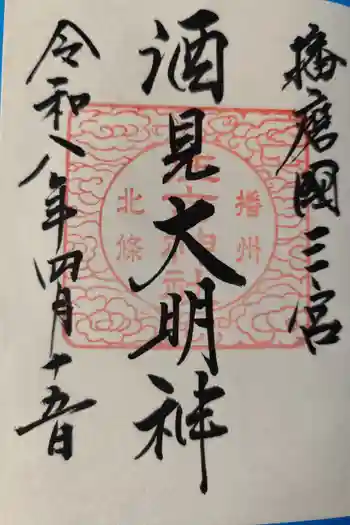 播磨國三宮
酒見大明神
令和八年四月十五日
播州
北條